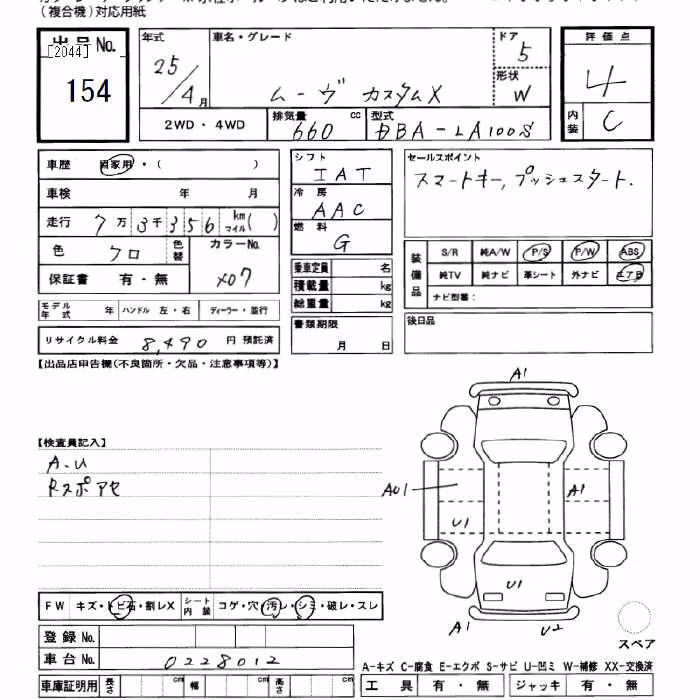 (複合機)対応用紙
出品No.
[2044]
154
年式
25/4月
車名・グレード
ムーヴ カスタムX
ドア
5
形状
W
2WD・4WD
排気量
660 cc
型式
DBA-LA100S
評価点
4
内装
C
車歴 自家用・( )
車検 年 月
走行 7万3千356 km マイル( )
色 クロ 色替
カラーNo.
X07
保証書 有・無
モデル年式 年 ハンドル 左・右 ディーラー・並行
リサイクル料金 8,490 円 預託済
シフト
IAT
冷房
AAC
燃料
G
乗車定員 名
積載量 kg
総重量 kg
書類期限
月 日
セールスポイント
スマートキー, プッシュスタート.
装備品
S/R 純A/W P/S P/W ABS
純TV 純ナビ 革シート 外ナビ エアB
ナビ型番:
後日品
【出品店申告欄(不良箇所・欠品・注意事項等)】
【検査員記入】
A.U
Rスポアセ
A1
AU1
A1
U1
U1
A1
U2
スペア
FW キズ・トビ石・割レX シート内装 コゲ・穴・汚レ・シミ・破レ・スレ
登録No.
車台No. 0228012
車庫証明用 長さ cm 幅 cm 高さ cm
A-キズ C-腐食 E-エクボ S-サビ U-凹ミ W-補修 XX-交換済
工具 有・無 ジャッキ 有・無